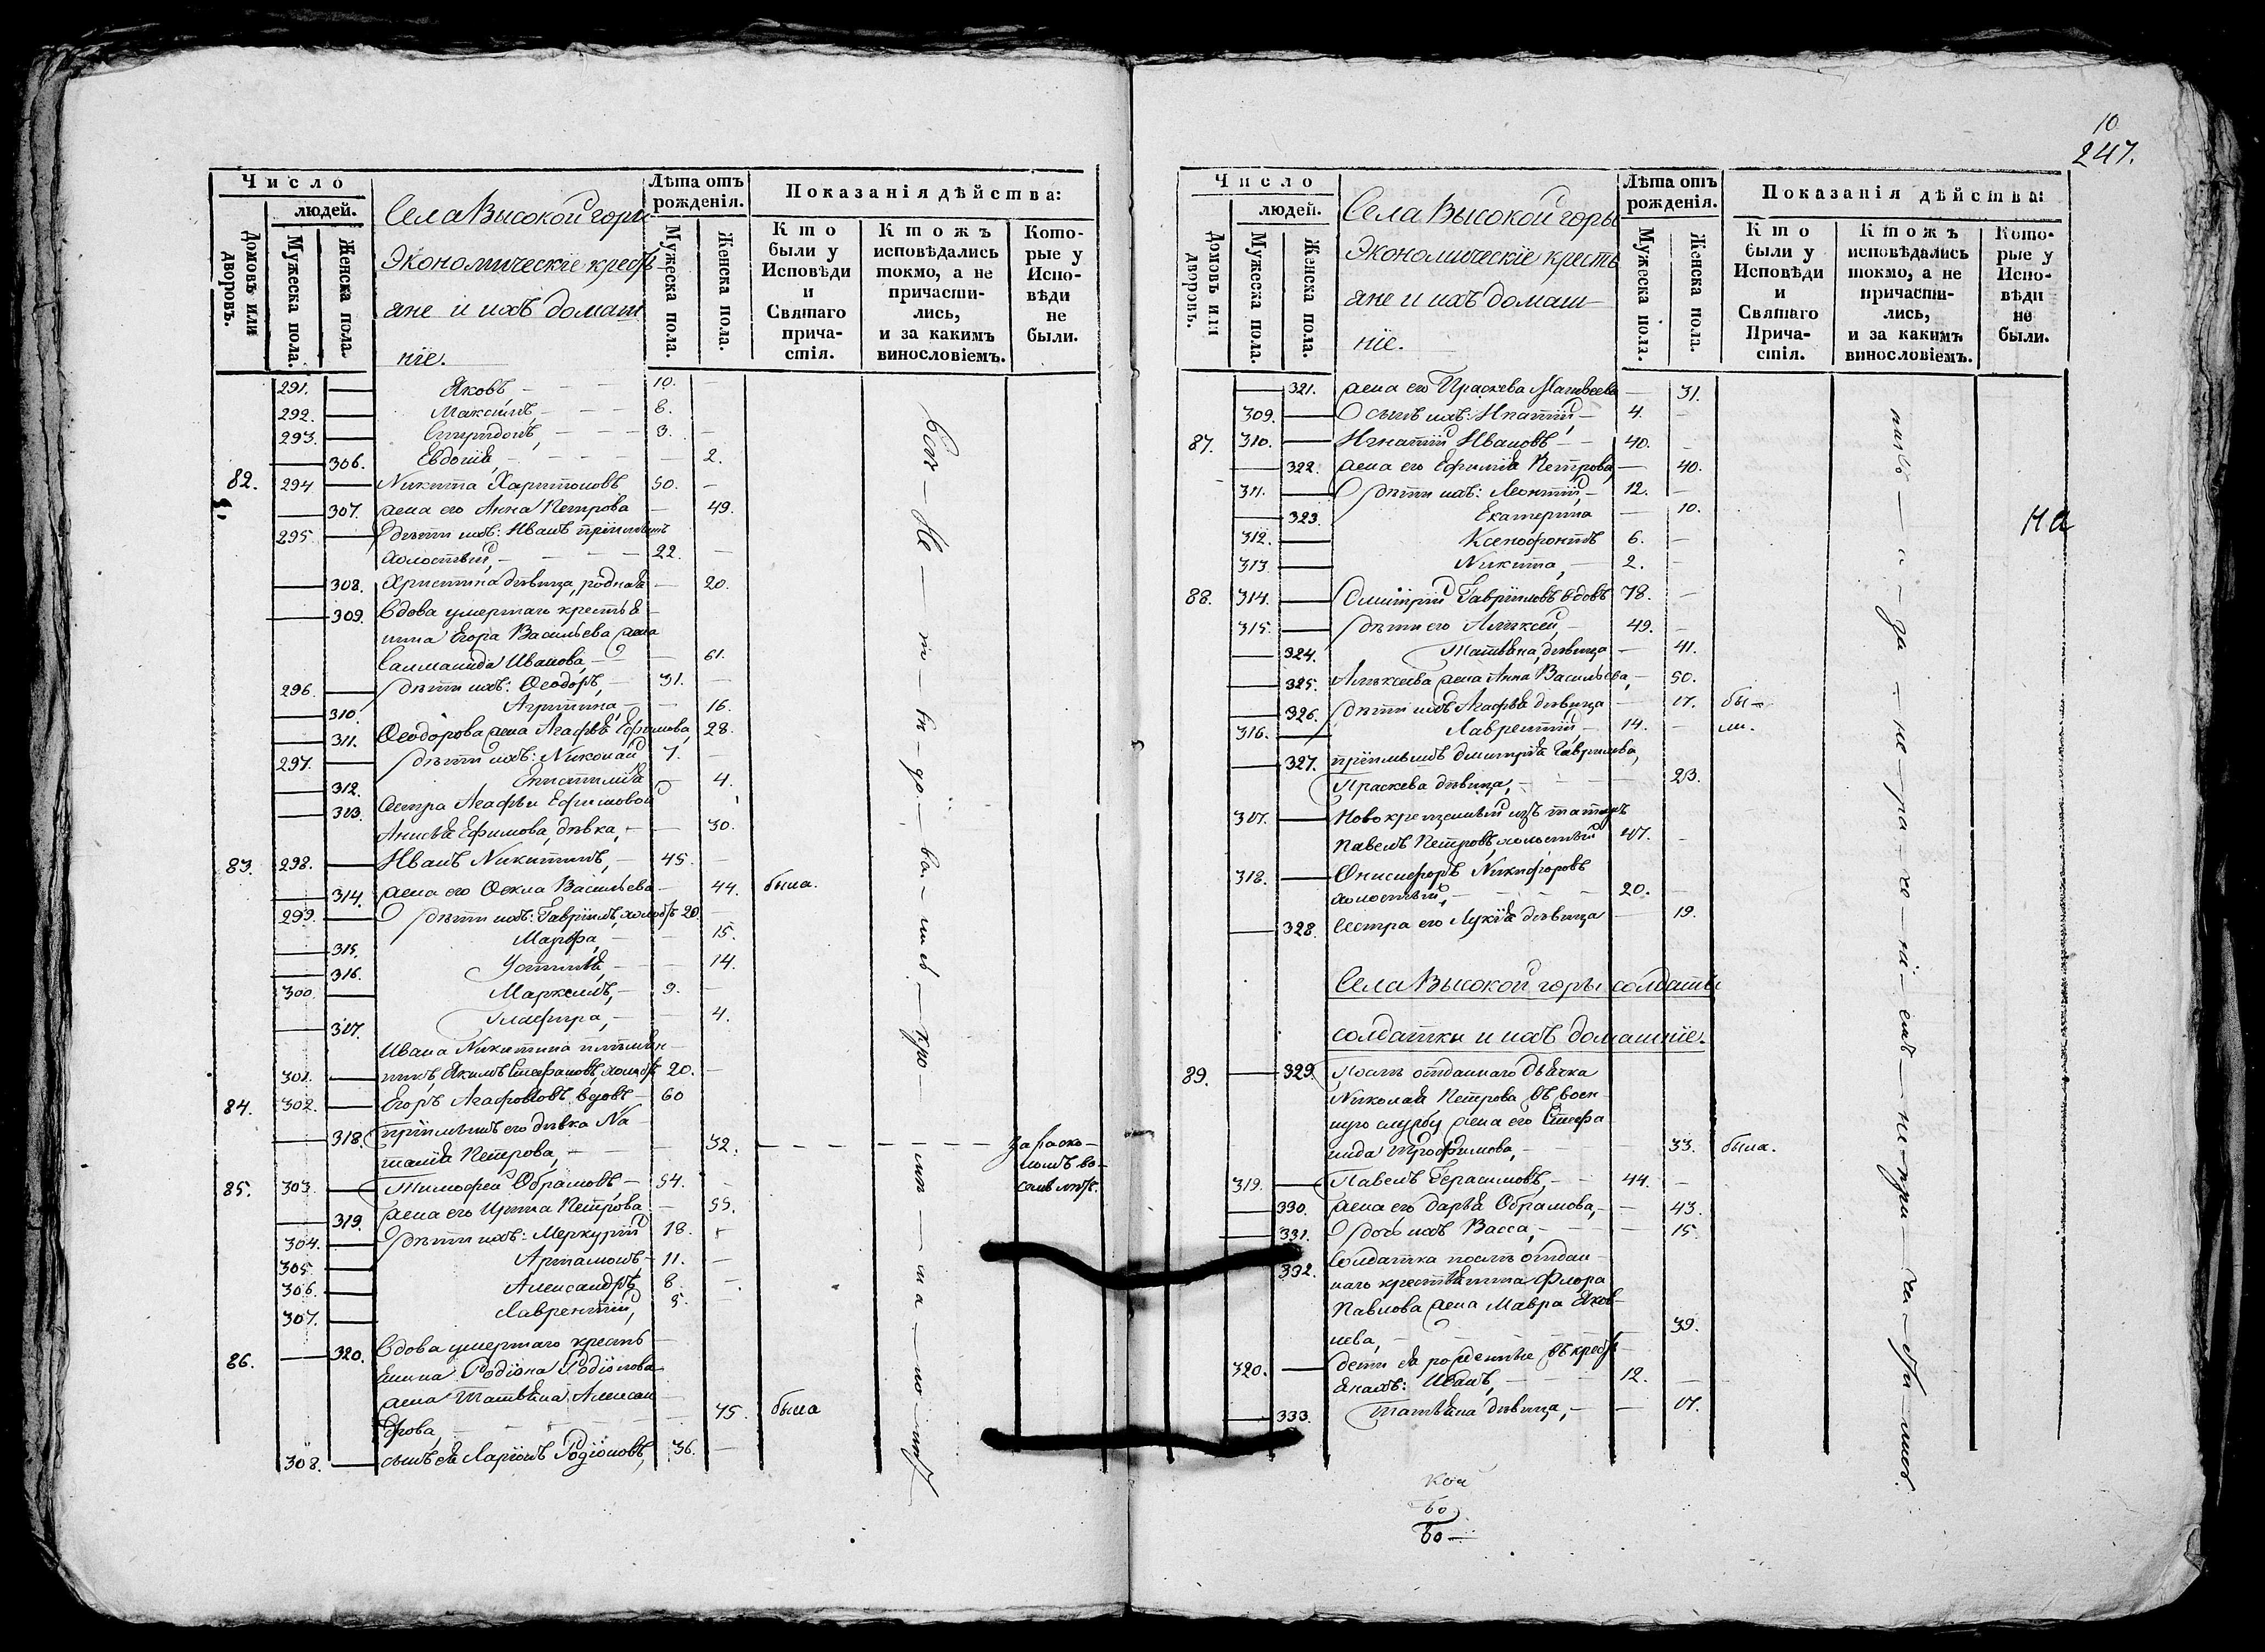 Число
людей.
Домовъ или дворовъ.
Мужеска пола.
Женска пола.
Села Высокой горы
Экономическіе кресть-
яне и ихъ домаш
ніе.
Лѣта отъ рожденія.
Мужеска пола.
Женска пола.
Показанія дѣйства:
Кто были у Исповѣди и Святаго причастія.
Ктожъ исповѣдались токмо, а не причастились, и за какимъ винословіемъ.
Которые у Исповѣди не были.
291. Яковъ, 10.
292. Максимъ, 8.
293. Спиридонъ, 3.
306. Евдокія, 2.
82. 294 Никита Харитоновъ 50.
307. жена его Анна Петрова 49.
295 дѣти ихъ: Иванъ пріимышъ
холостый, 22.
308. Христина дѣвица, родная 20.
309. Вдова умершаго крестья
нина Егора Васильева жена
Саломанида Иванова, 61.
296. дѣти ихъ: Ѳеодоръ, 31.
310. Агрипина, 16.
311. Ѳеодорова жена Агафья Ефимова, 28.
297. дѣти ихъ: Николай 7.
312. Епистимія 4.
313. Сестра Агафьи Ефимовой
Анисья Ефимова, дѣвка, 30.
83. 298. Иванъ Никитинъ, 45.
314. жена его Ѳекла Васильева 44. была.
299. дѣти ихъ: Гавріилъ, холостъ 20.
315. Марфа, 15.
316. Устинья, 14.
300. Маркелъ, 9.
317. Глафира, 4.
Ивана Никитина племян
никъ Якимъ Стефановъ, холостъ 20.
301.
84. 302. Егоръ Агафоновъ вдовъ 60
318. пріимышъ его дѣвка На
талія Петрова, 32. за раско-
ломъ во-
семь лѣтъ.
85. 303. Тимофей Обрамовъ 54.
319. жена его Ирина Петрова 55.
304. дѣти ихъ: Меркурій 18.
305. Артамонъ, 11.
306. Александръ, 8
307. Лаврентій, 5.
86. 320. Вдова умершаго кресть
янина Родіона Родіонова
жена Татьяна Алексан
дрова, 75. была
308. сынъ ея Ларіонъ Родіоновъ, 36.
10
247.
Число
людей.
Домовъ или дворовъ.
Мужеска пола.
Женска пола.
Села Высокой горы
Экономическіе кресть
яне и ихъ домаш-
ніе.
Лѣта отъ рожденія.
Мужеска пола.
Женска пола.
Показанія дѣйства:
Кто были у Исповѣди и Святаго Причастія.
Ктожъ исповѣдались токмо, а не причастились, и за какимъ винословіемъ.
Которые у Исповѣди не были.
321. жена его Праскева Матвеева 31.
309. сынъ ихъ: Ипатій, 4.
87. 310. Игнатій Ивановъ 40.
322. жена его Ефимія Петрова, 40.
311. дѣти ихъ: Леонтій, 12.
323. Екатерина 10.
312. Ксенофонтъ 6.
313. Никита, 2.
на
88. 314. Дмитрій Гавриловъ вдовъ 78.
315. дѣти его Алѣксей, 49.
324. Татьяна, дѣвица 41.
325. Алѣксеева жена Анна Васильева, 50.
326. дѣти ихъ Агафья дѣвица 17. бы-
316. Лаврентій, 14. ли.
327. пріимышъ Дмитрія Гаврилова,
Праскева дѣвица, 23.
317. Новокрещеный изъ татаръ
Павелъ Петровъ, холостый 47.
318. Онисифоръ Никифоровъ
холостый, 20.
328. Сестра его Лукія дѣвица 19.
Села Высокой горы солдаты
солдатки и ихъ домашніе.
89. 329. Послѣ отданнаго дьячка
Николая Петрова въ воен
ную службу жена его Стефа
нида Трофимова, 33. была.
319. Павелъ Герасимовъ, 44.
330. жена его Дарья Обрамова, 43.
331. дочь ихъ Васса, 15.
332. Солдатка послѣ отдан
наго крестьянина Флора
Павлова жена Мавра Яков
лева, 39.
320. дети ея рожденные въ кресть
янахъ: Иванъ, 12.
333. Татьяна дѣвица, 17.